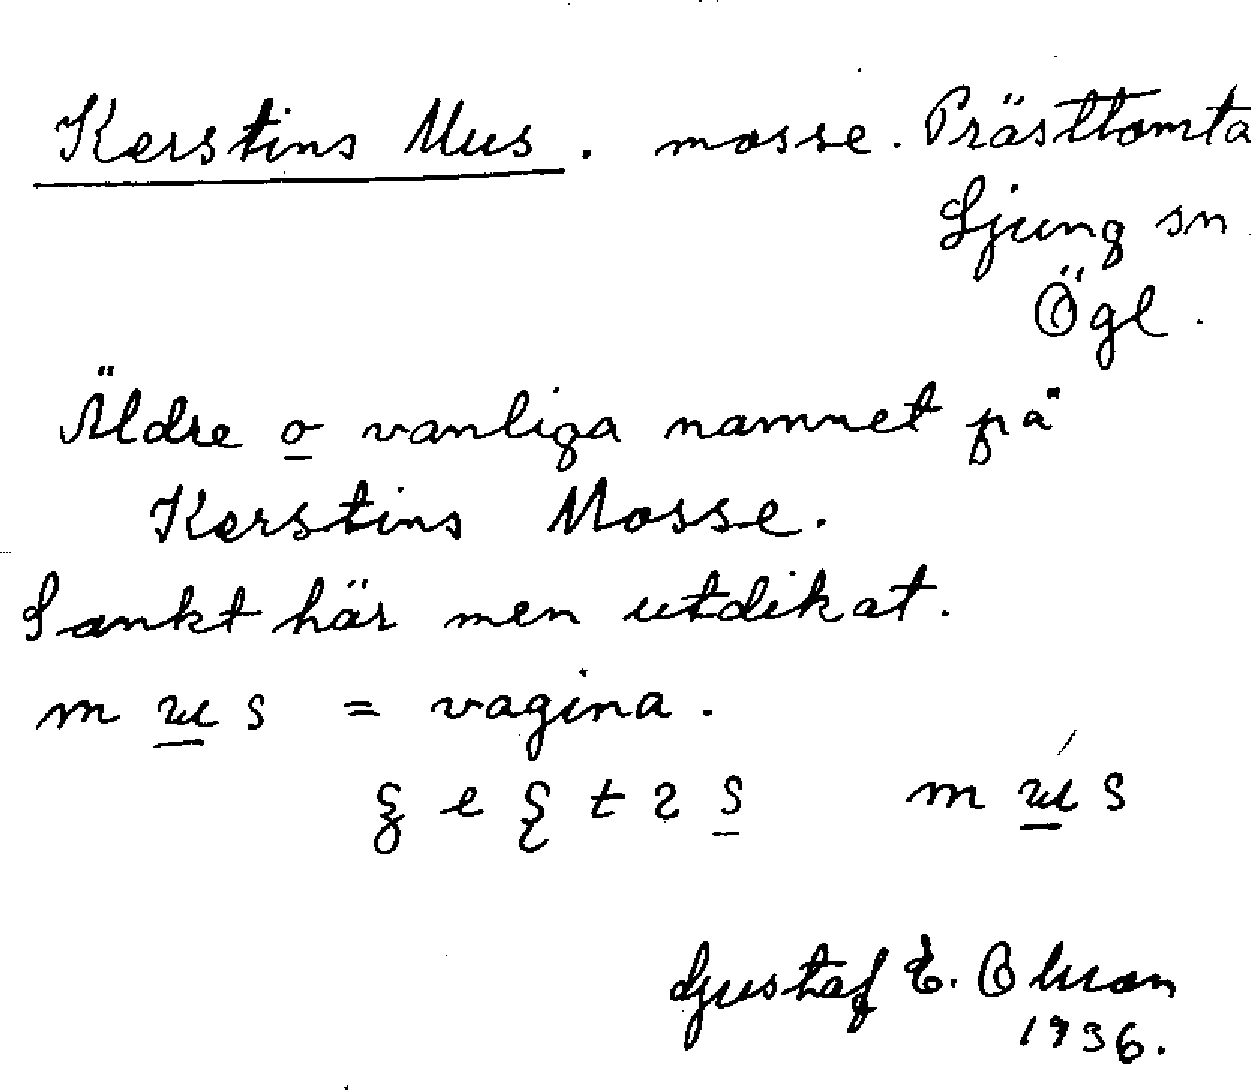 Kerstins Mus. mosse. Prästtomta
Ljung sn
Ögl.
Äldre o vanliga namnet på
Kerstins Mosse.
Sankt här men utdikat.
m u s = vagina.
m u s
Gustaf E.
1936.